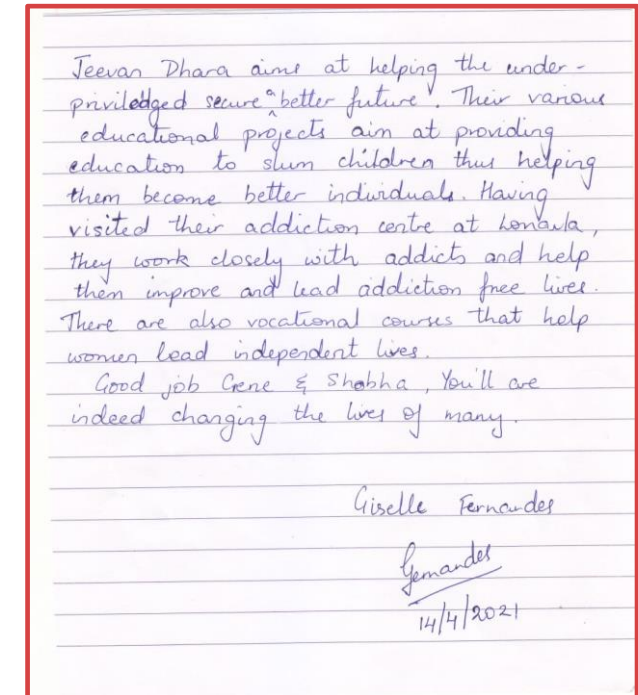 Jeevan Dhara aims at helping the under-
priviledged secure a better future. Their various
educational projects aim at providing
education to slum children thus helping
them become better individuals. Having
visited their addiction centre at Lonavla,
they work closely with addicts and help
them improve and lead addiction free lives.
There are also vocational courses that help
women lead independent lives.
Good job Gene & Shobha, You'll are
indeed changing the lives of many.
Giselle Fernandes
Gernandes
14/4/2021